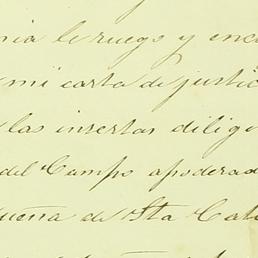 nia le ruego y enc
mi carta de justic
las insertas dilig
del Campo apoderad
uena de Sta Cata